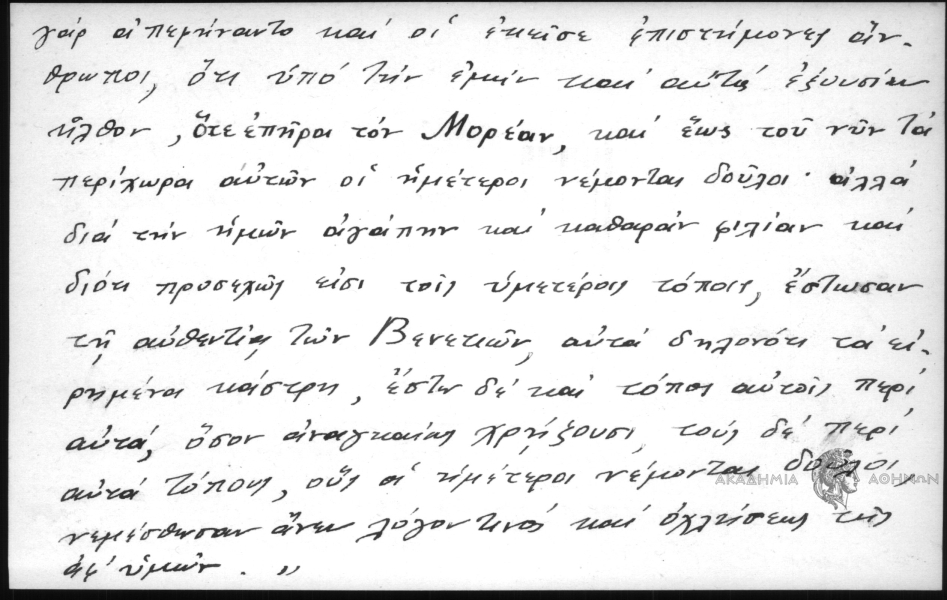 γάρ ἀπεμήναντο καί οἱ ἐκεῖσε ἐπιστήμονες ἄν-
θρωποι, ὅτι ὑπό τήν ἐμήν καί αὐτά ἐξουσίαν
ἦλθον, ὅτε ἐπῆρα τόν Μορέαν, καί ἕως τοῦ νῦν τά
περίχωρα αὐτῶν οἱ ἡμέτεροι νέμονται δοῦλοι· ἀλλά
διά τήν ἡμῶν ἀγάπην καί καθαράν φιλίαν καί
διότι προσεχῶς εἰσι τοῖς ὑμετέροις τόποις, ἔστωσαν
τῇ αὐθεντίᾳ τῶν Βενετιῶν, αὐτά δηλονότι τά εἰ-
ρημένα κάστρη, ἔστω δέ καί τόπος αὐτοῖς περί
αὐτά, ὅσον ἀναγκαίως χρῄζουσι, τούς δέ περί
αὐτά τόπους, οὕς οἱ ἡμέτεροι νέμονται δοῦλοι,
νεμέσθωσαν ἄνευ λόγου τινός καί ὀχλήσεως τῆς
ἀφ' ὑμῶν. „
ΑΚΑΔΗΜΙΑ ΑΘΗΝΩΝ